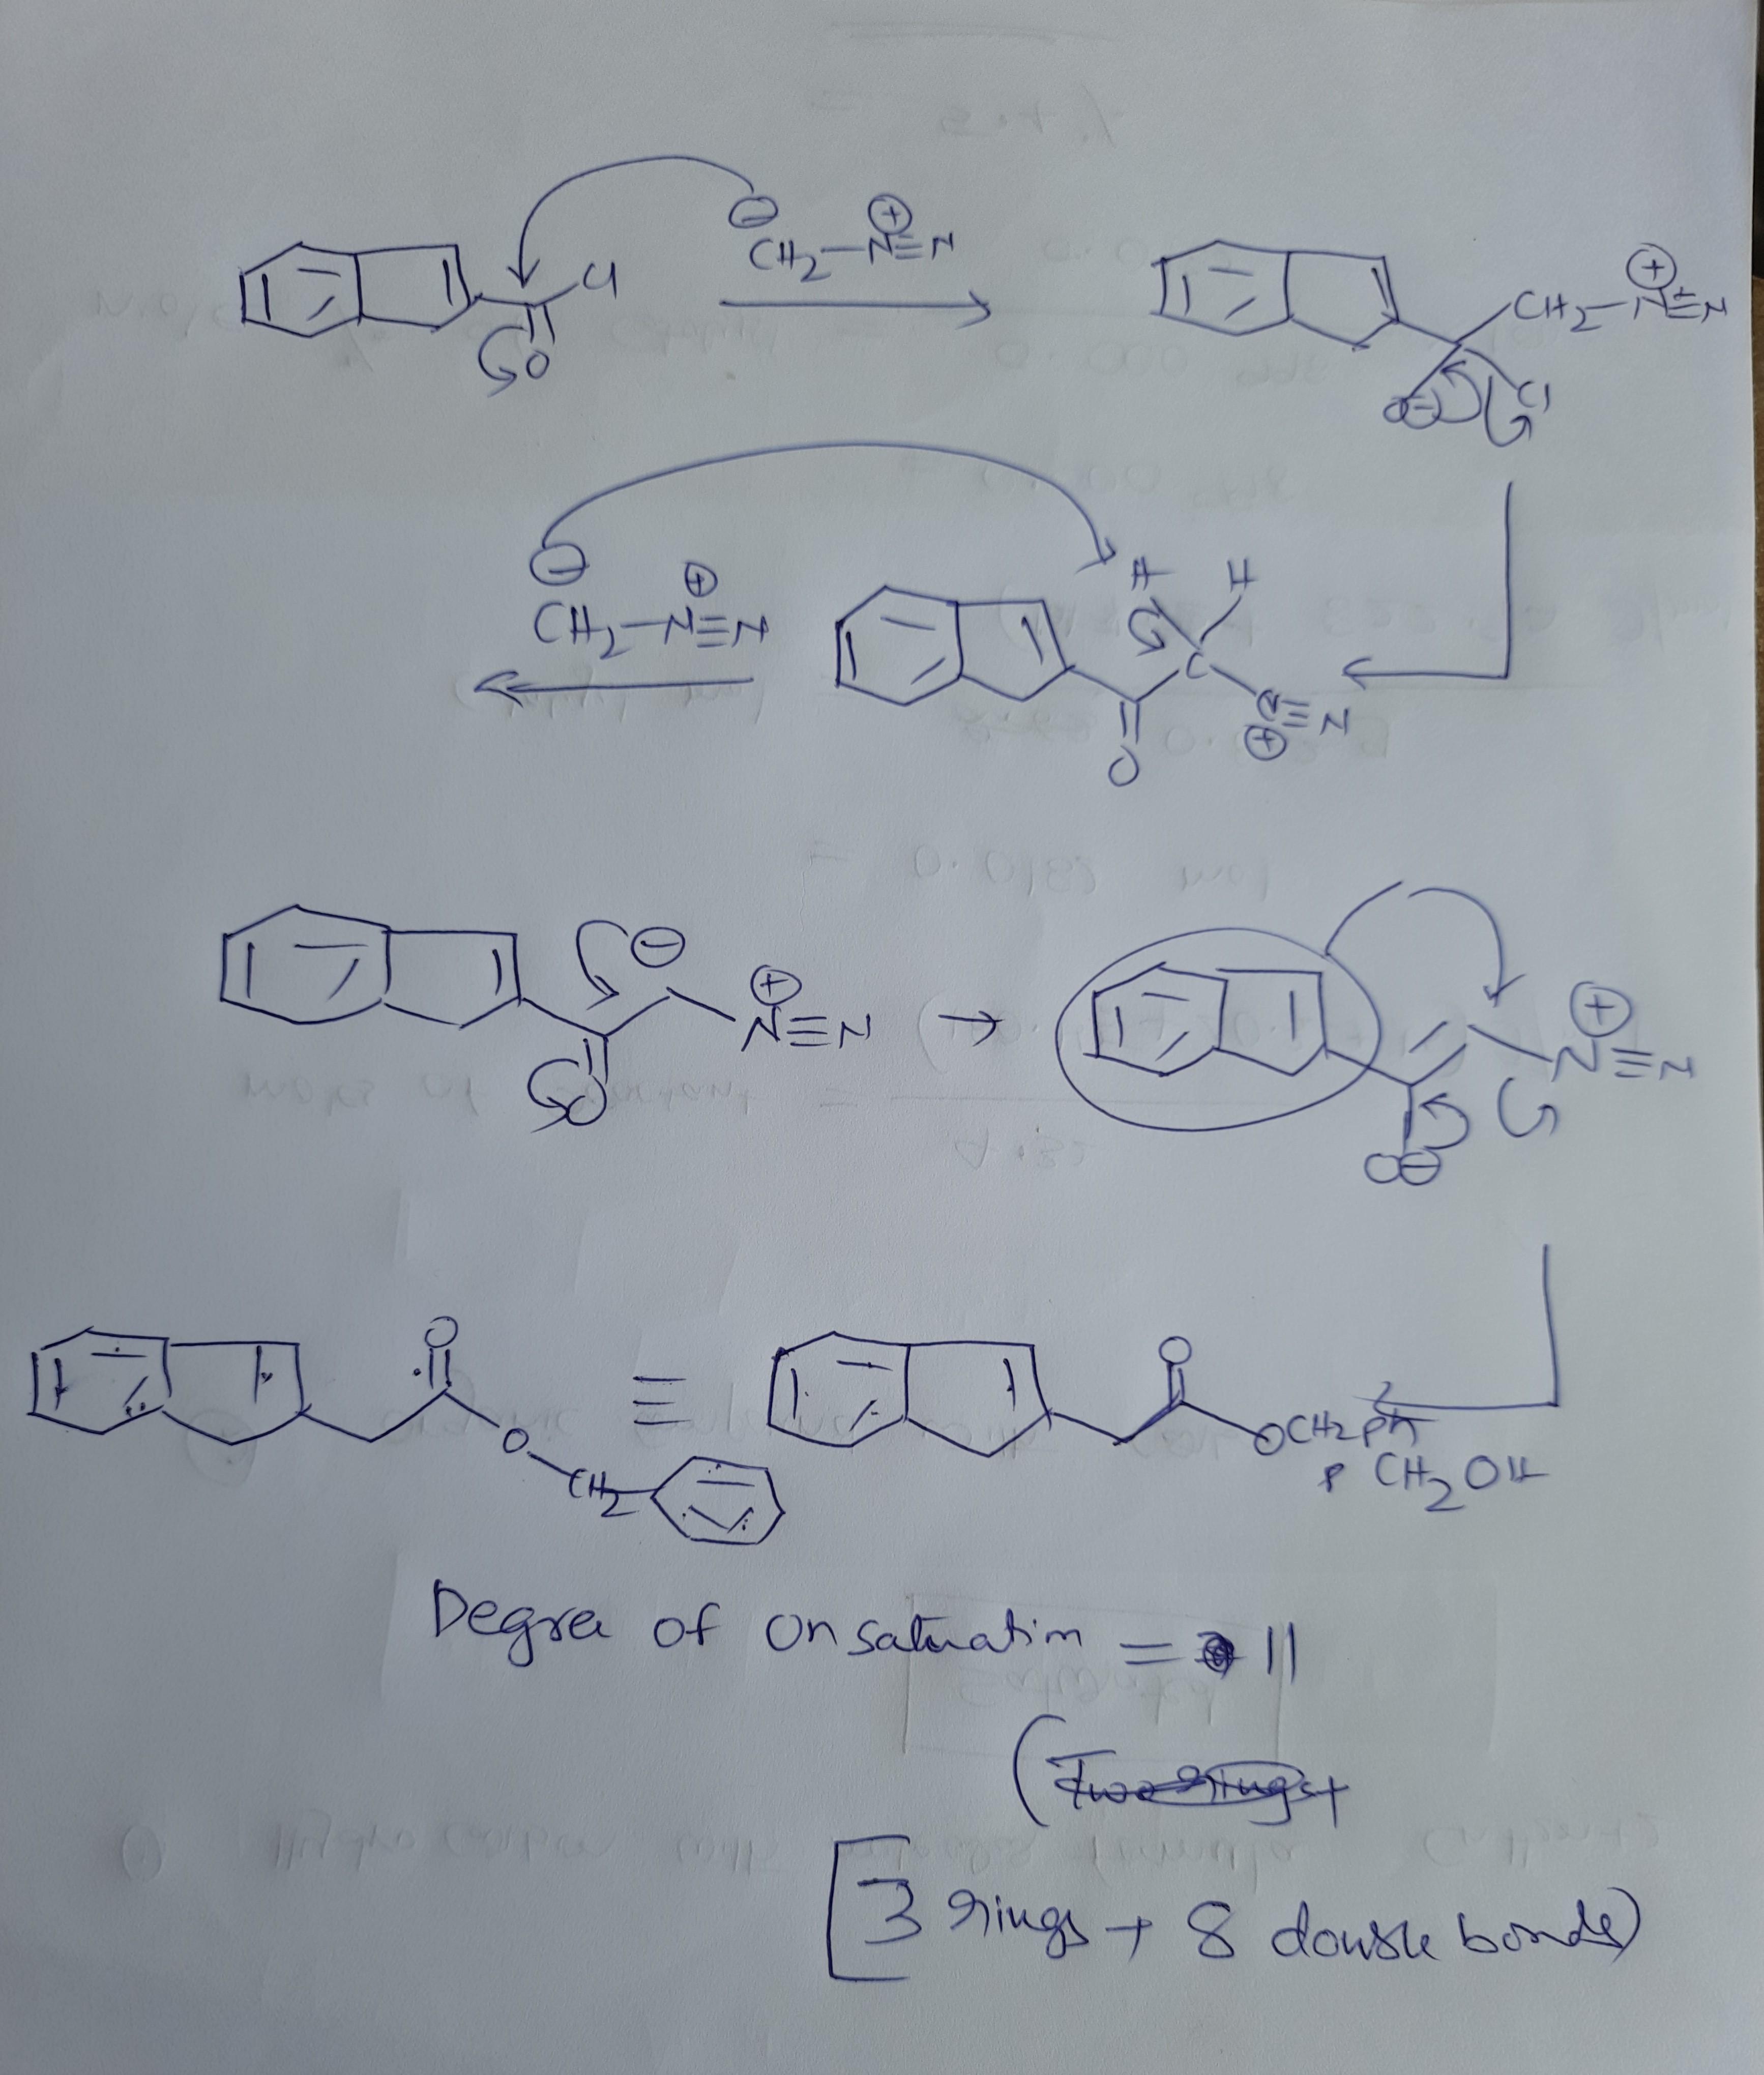 ⊖
CH2–N⊕≡N
Cl
O
CH2–N⊕≡N
O⊖
Cl
⊖
CH2–N⊕≡N
H
H
C
N≡N
⊕
O
⊖
⊕
N≡N
O
→
⊕
N≡N
O⊖
O
O
CH2
≡
O
OCH2Ph
CH2OH
Degree of Unsaturation = 11
[3 rings + 8 double bonds)